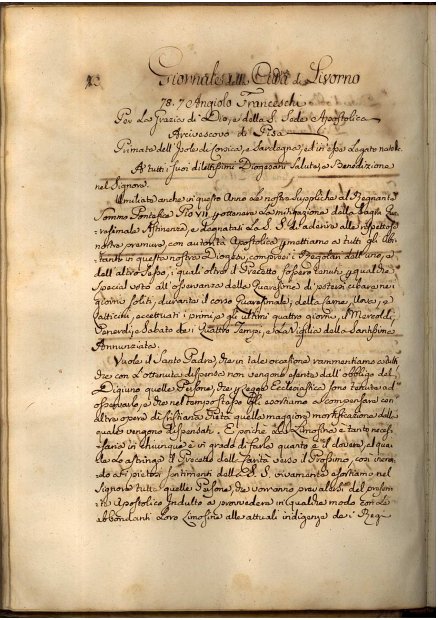 Giornale Città di Livorno
78. 7 Angiolo Franceschi
Per La Grazia di Dio, e della S. Sede Apostolica
Arcivescovo di Pisa
Primate dell'Isole di Corsica, e Sardegna, ed in esse Legato nato &c.
A' tutti i suoi dilettissimi Diogesani Salute, e Benedizione
nel Signore.
Umiliate anche in questo Anno le nostre suppliche al Regnante
Sommo Pontefice Pio VII per ottenere la mitigazione della Sagra Qua-
resimale Astinenza, e degnatasi La S. S. di aderire alle rispettose
nostre premure, con autorità Apostolica permettiamo a tutti gli Abi-
tanti in questa nostra Diogesi, compresi i Regolari dell'uno, e
dell'altro Sesso, i quali oltre il Precetto fossero tenuti per qualche
Special voto all'osservanza della Quaresima di potersi cibare nei
giorni soliti, durante il corso Quaresimale, della Carne, Uova, e
Latticini, eccettuati i primi, e gli ultimi quattro giorni, il Mercoldì,
Venerdì, e Sabato de i Quattro Tempi, e La Vigilia della Santissima
Annunziata.
Vuole il Santo Padre, che in tale occasione rammentiamo a tutti,
che con L'ottenuta dispensa non vengono esentate dall'obbligo del
Digiuno quelle Persone, che per Legge Ecclesiastica sono tenute ad
osservarlo, e che nel tempo stesso gli esortiamo a compensare con
altre opere di Cristiana Pietà quella maggiore mortificazione dalla
quale vengono dispensati. E poichè La Limosina è tanto neces-
saria in chiunque è in grado di farla quanto è il dovere, al qua-
le lo astringe il Precetto della Carità verso il Prossimo, così
ai pietosi sentimenti della S. S. vivamente esortiamo nel
Signore tutte quelle Persone, che vorranno prevalersi del presen-
te Apostolico Indulto a provvedere in qualche modo con le
abbondanti Loro Limosine alle attuali indigenze de i